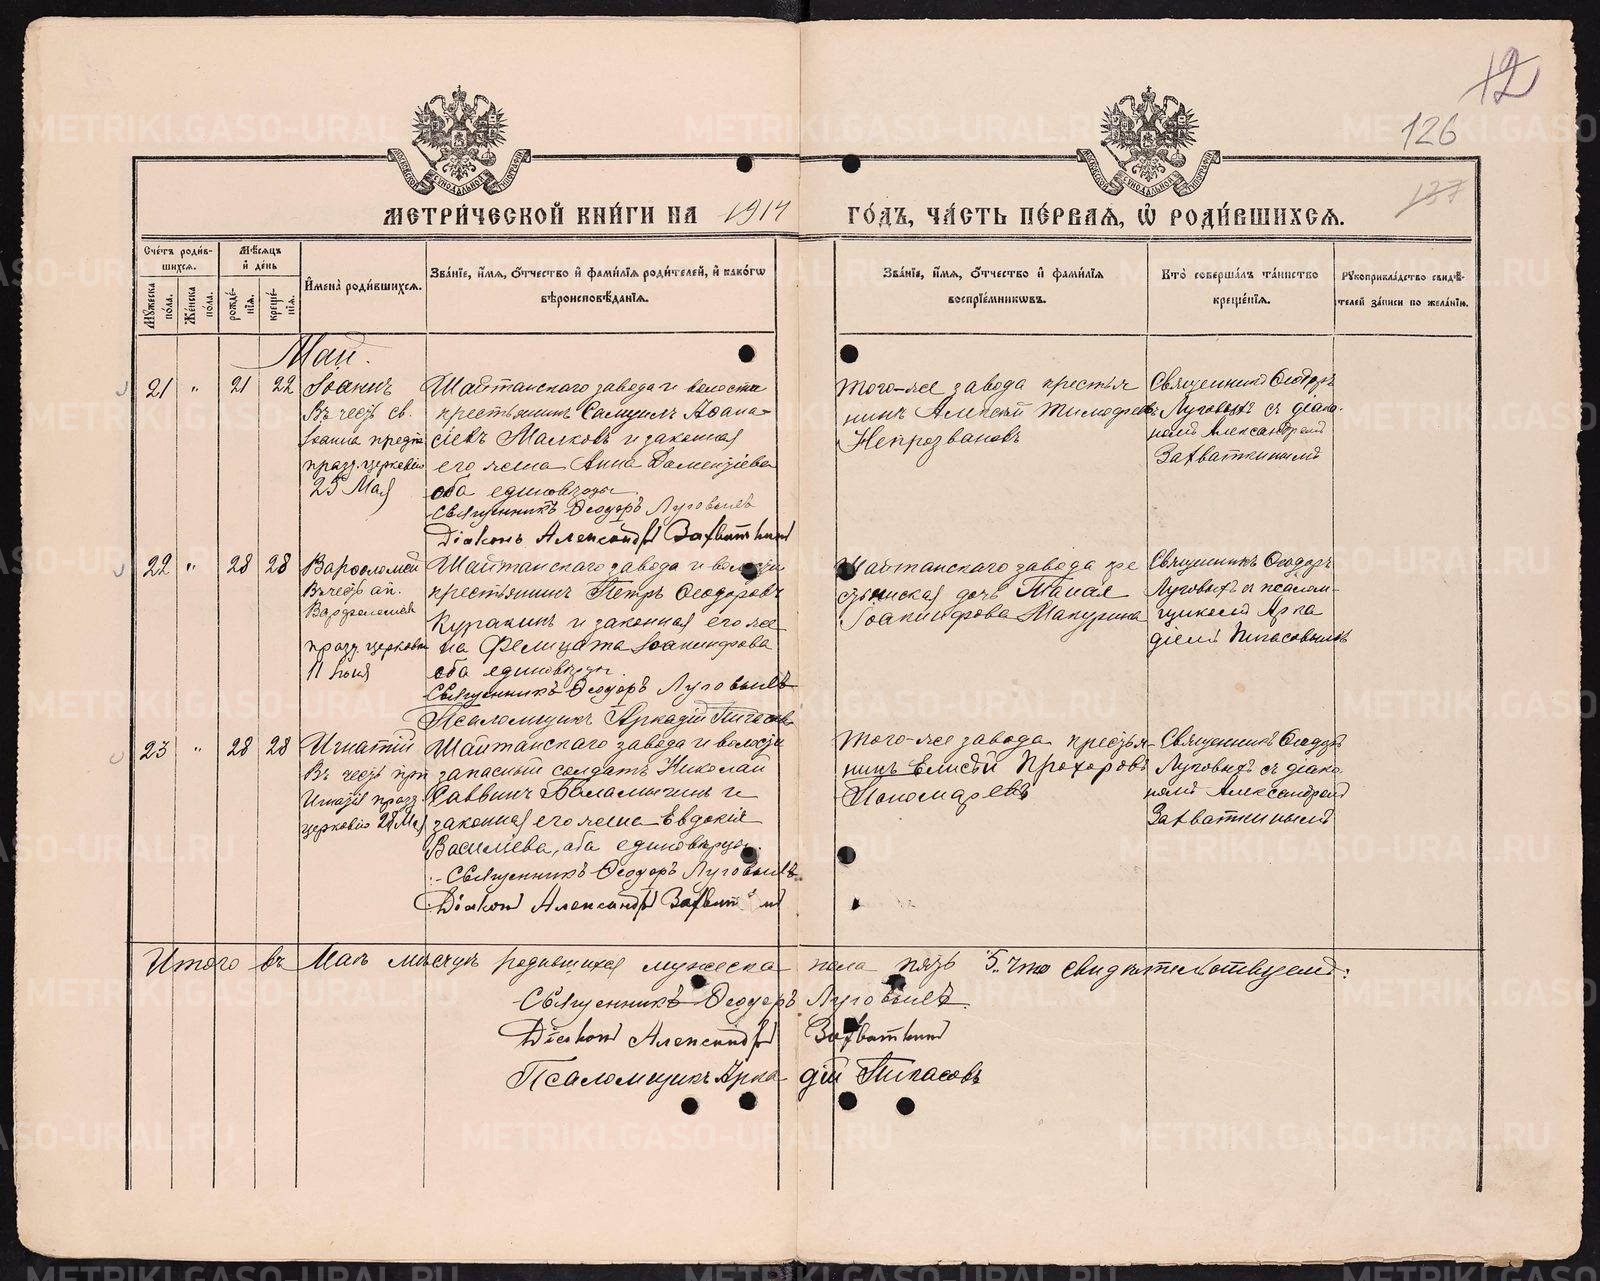 12
126
137
МЕТРИ́ЧЕСКОЙ КНИ́ГИ НА 1914 ГО́ДЪ, ЧА́СТЬ ПЕ́РВАЯ, Ѡ РОДИ́ВШИХСЯ.
Сче́тъ роди́вшихся.
Му́жеска по́ла.
Же́нска по́ла.
Мѣ́сяцъ и де́нь
рожде́нія.
креще́нія.
Имена̀ роди́вшихся.
Зва́ніе, и́мя, о́тчество и фами́лія роди́телей, и како́гѡ
вѣроисповѣ́данія.
Зва́ніе, и́мя, о́тчество и фами́лія
воспріе́мниковъ.
Кто̀ соверша́лъ та́инство
креще́нія.
Рукоприкла́дство свидѣ́-
телей за́писи по жела́нію.
Май.
21 " 21 22
Іоаннъ
Въ честь св.
Іоанна предт.
празд. церковію
25 Мая
Шайтанскаго завода и волости
крестьянинъ Самуилъ Аѳана-
сіевъ Малковъ и законная
его жена Анна
оба единовѣрцы.
Священникъ Ѳеодоръ Луговыхъ
Діаконъ Александръ Захваткинъ
Того-же завода крестья
нинъ Алексѣй Тимоѳеевъ
Непрозвановъ
Священникъ Ѳеодоръ
Луговыхъ съ діако-
номъ Александромъ
Захваткинымъ
22 " 28 28
Варѳоломей
Въ честь ап.
Варѳоломея
празд. церковію
11 Іюня
Шайтанскаго завода и волости
крестьянинъ Петръ Ѳеодоровъ
Куракинъ и законная его же
на Фелицата Іоакинфова
оба единовѣрцы.
Священникъ Ѳеодоръ Луговыхъ
Псаломщикъ Аркадій Пигасовъ
Шайтанскаго завода кре
стьянская дочь Таисія
Іоакинфова Макурина
Священникъ Ѳеодоръ
Луговыхъ съ псалом-
щикомъ Арка
діемъ Пигасовымъ
23 " 28 28
Игнатій
Въ честь прп
Игнатія празд.
церковію 28 Мая
Шайтанскаго завода и волости
запасный солдатъ Николай
Саввинъ Баламычинъ и
законная его жена Евдокія
Василіева, оба единовѣрцы.
Священникъ Ѳеодоръ Луговыхъ
Діаконъ Александръ Захваткинъ
Того-же завода крестья-
нинъ Елисѣй Прохоровъ
Пономаревъ
Священникъ Ѳеодоръ
Луговыхъ съ діако-
номъ Александромъ
Захваткинымъ
Итого въ Маѣ мѣсяцѣ родившихся мужеска пола пять "5" что свидѣтельствуемъ:
Священникъ Ѳеодоръ Луговыхъ.
Діаконъ Александръ Захваткинъ
Псаломщикъ Аркадій Пигасовъ
METRIKI.GASO-URAL.RU